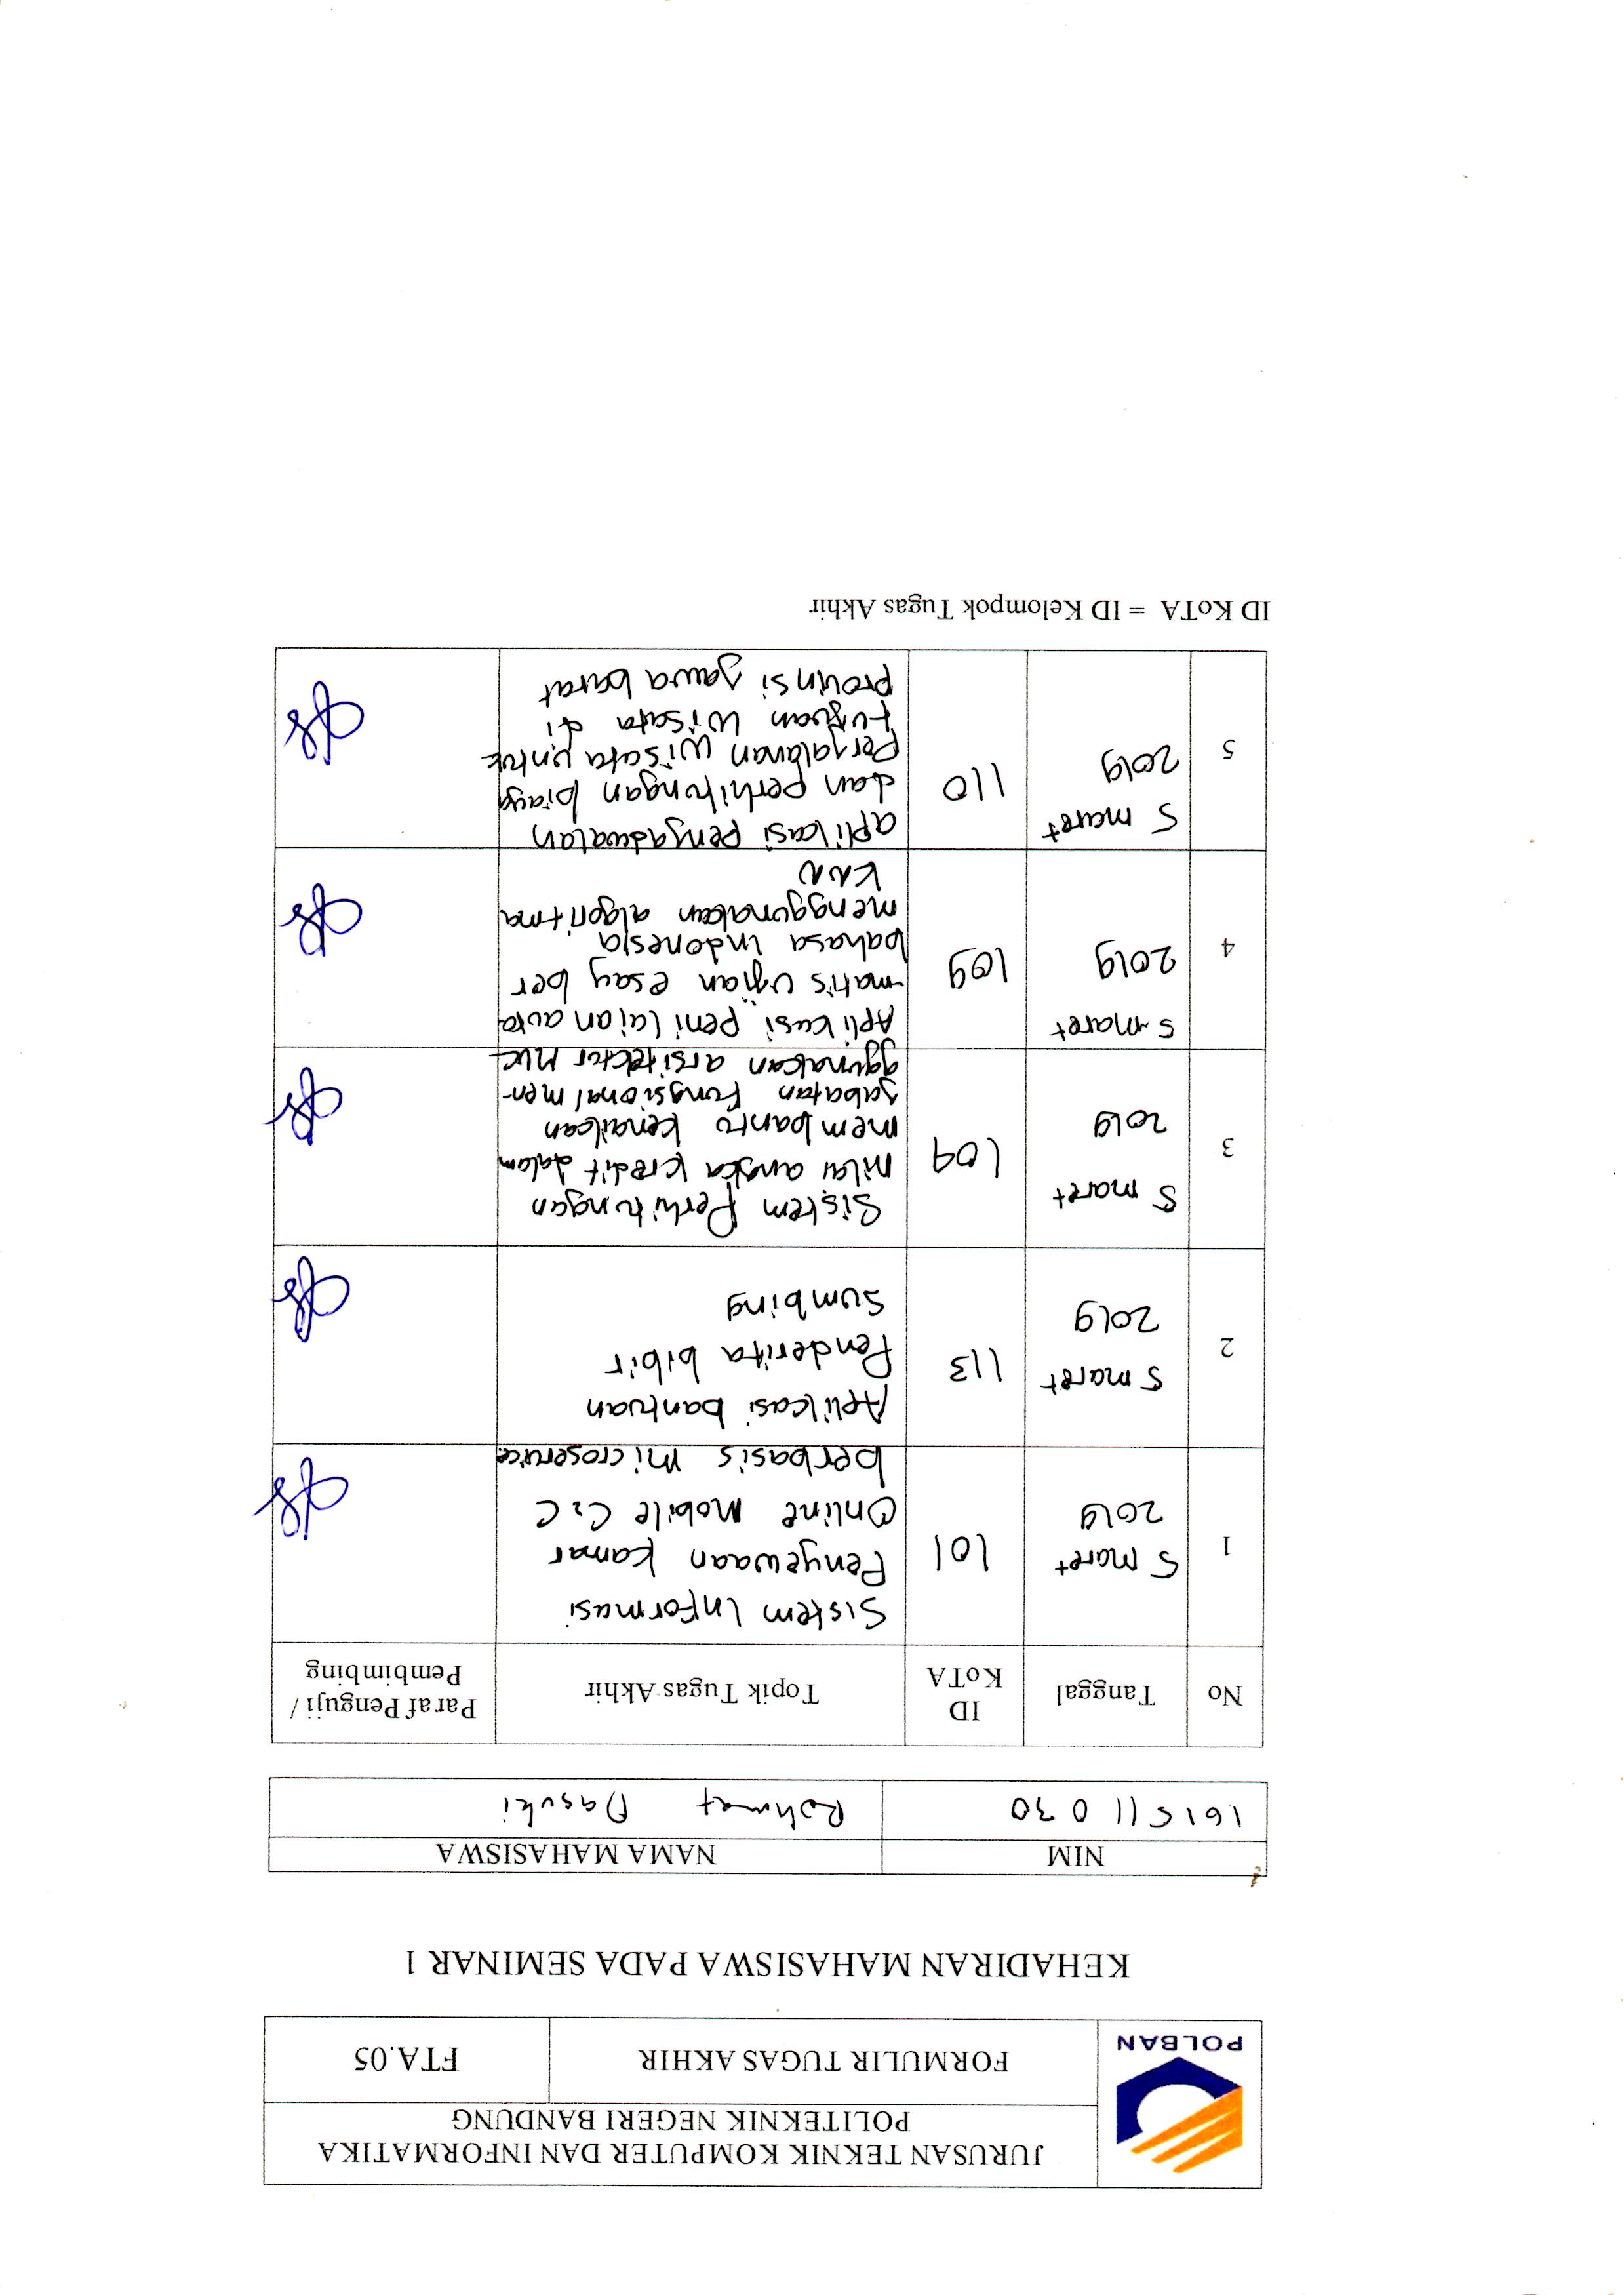 POLBAN
JURUSAN TEKNIK KOMPUTER DAN INFORMATIKA
POLITEKNIK NEGERI BANDUNG
FORMULIR TUGAS AKHIR
FTA.05
KEHADIRAN MAHASISWA PADA SEMINAR 1
NIM NAMA MAHASISWA
161511030 Rohmat Dasuki
No Tanggal ID KoTA Topik Tugas Akhir Paraf Penguji / Pembimbing
1
5 maret
2019
101
Sistem Informasi
Penyewaan kamar
Online Mobile C2C
berbasis microservice
2
5 maret
2019
113
Aplikasi bantuan
Penderita bibir
Sumbing
3
5 maret
2019
109
Sistem Perhitungan
nilai angka kredit dalam
membantu kenaikan
jabatan fungsional men-
ggunakan arsitektur MVC
4
5 maret
2019
109
Aplikasi penilaian auto
-matis ujian esay ber
bahasa indonesia
menggunakan algoritma
KNN
5
5 maret
2019
110
aplikasi penjadwalan
dan perhitungan biaya
Perjalanan wisata untuk
tujuan wisata di
provinsi jawa barat
ID KoTA = ID Kelompok Tugas Akhir